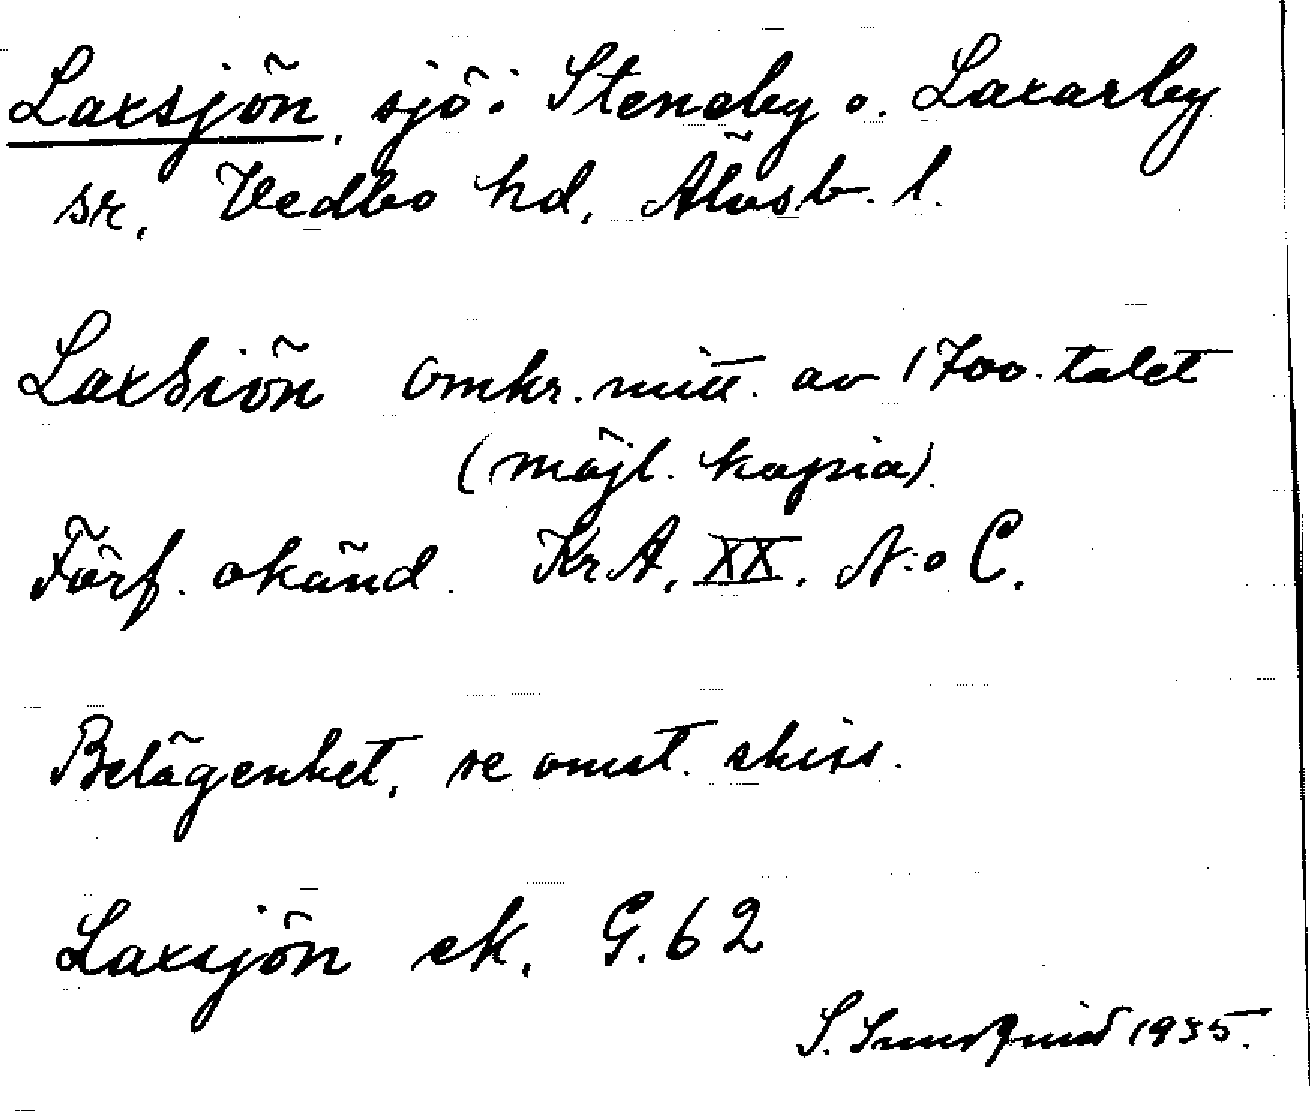 Laxsjön, sjö i Steneby o. Laxarby
sn, Vedbo hd, Älvsb. l.
Laxsiön omkr. mitt. av 1700-talet
(möjl. kopia).
Förf. okänd. KrA, XX. N:o C.
Belägenhet, se omst. skiss.
Laxsjön ek. G. 62
S. Sundquist 1935.